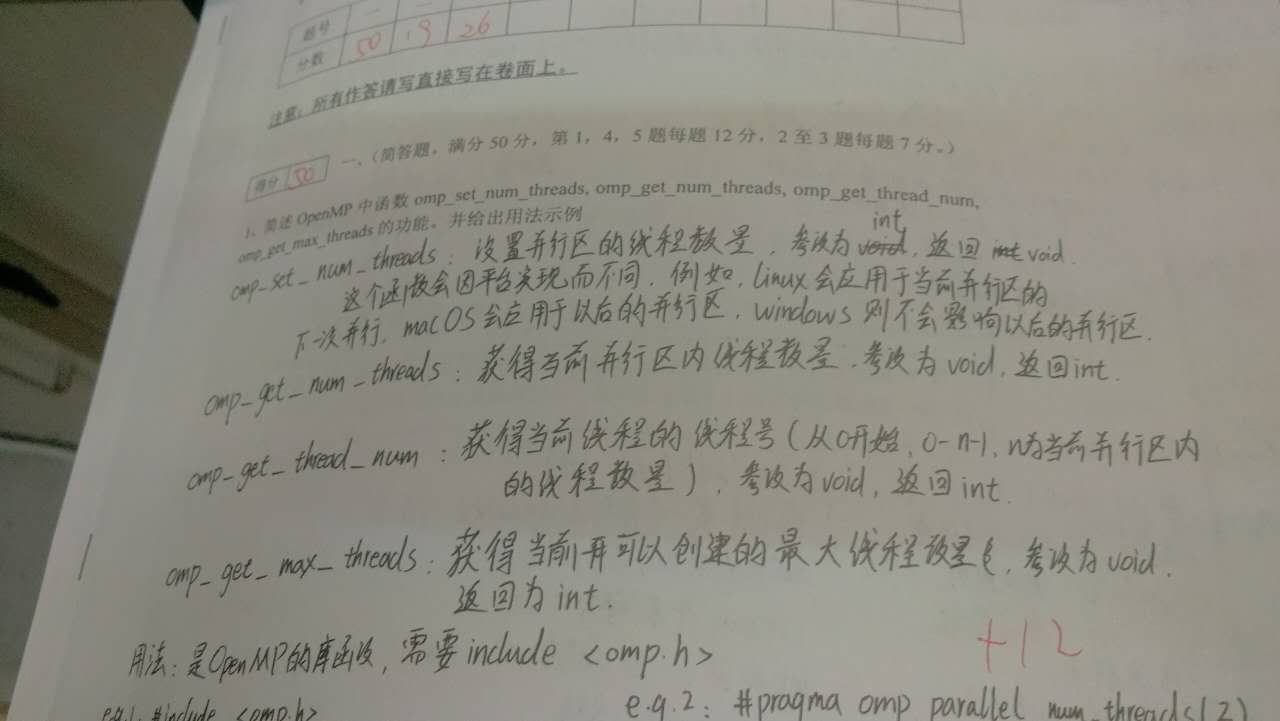 题号 一 二 三
分数 50 19 26
注意：所有作答请写直接写在卷面上。
得分 50 一、（简答题，满分 50 分，第 1，4，5 题每题 12 分，2 至 3 题每题 7 分。）
1. 简述 OpenMP 中函数 omp_set_num_threads, omp_get_num_threads, omp_get_thread_num,
omp_get_max_threads 的功能。并给出用法示例
int
omp_set_num_threads：设置并行区的线程数量，参数为 void，返回 int void.
这个函数会因平台实现而不同，例如，linux 会应用于当前并行区的
下一次并行，macOS 会应用于以后的并行区，windows 则不会影响以后的并行区.
omp_get_num_threads：获得当前并行区内线程数量，参数为 void，返回 int.
omp_get_thread_num：获得当前线程的线程号（从0开始，0-n-1，n为当前并行区内
的线程数量），参数为 void，返回 int.
omp_get_max_threads：获得当前可以创建的最大线程数量，参数为 void.
返回为 int.
+12
用法：是OpenMP的库函数，需要include <omp.h>
e.g.1 #include <omp.h>
e.g.2: #pragma omp parallel num_threads(2)